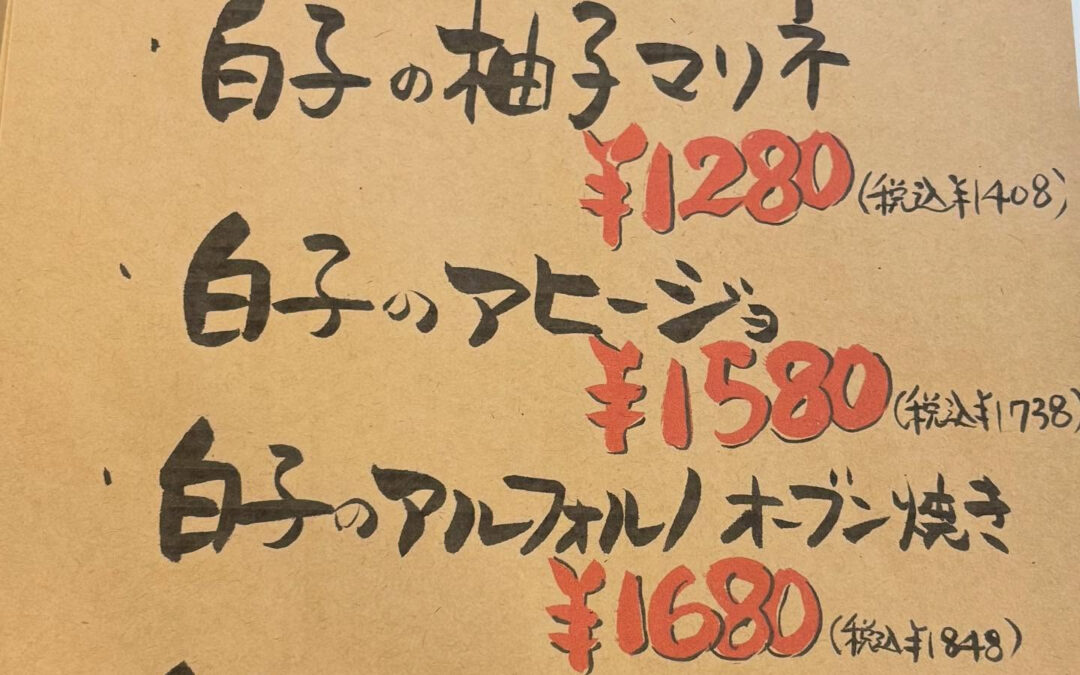 白子の柚子マリネ
¥1280(税込¥1408)
白子のアヒージョ
¥1580(税込¥1738)
白子のアルフォルノ オーブン焼き
¥1680(税込¥1848)